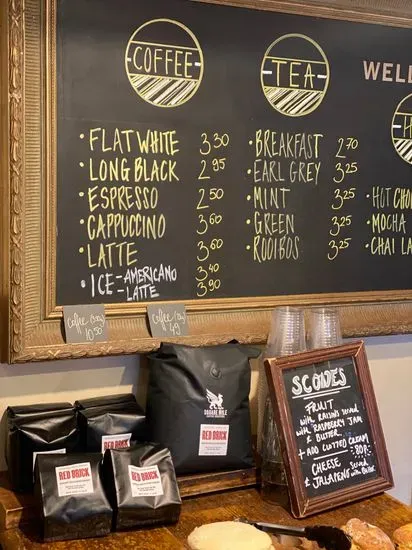 COFFEE
• FLAT WHITE 3.30
• LONG BLACK 2.95
• ESPRESSO 2.50
• CAPPUCCINO 3.60
• LATTE 3.60
• ICE - AMERICANO 3.40
LATTE 3.90
TEA
• BREAKFAST 2.70
• EARL GREY 3.25
• MINT 3.25
• GREEN 3.25
• ROOIBOS 3.25
WELL
• HOT CHO
• MOCHA
• CHAI LA
Coffee
10.50
Coffee
49
SQUARE MILE
RED BRICK
RED BRICK
RED BRICK
RED BRICK
SCONES
FRUIT
with RAISINS served
with RASPBERRY JAM
& BUTTER
+ ADD CLOTTED CREAM
80P
CHEESE
& JALAPEÑO served with